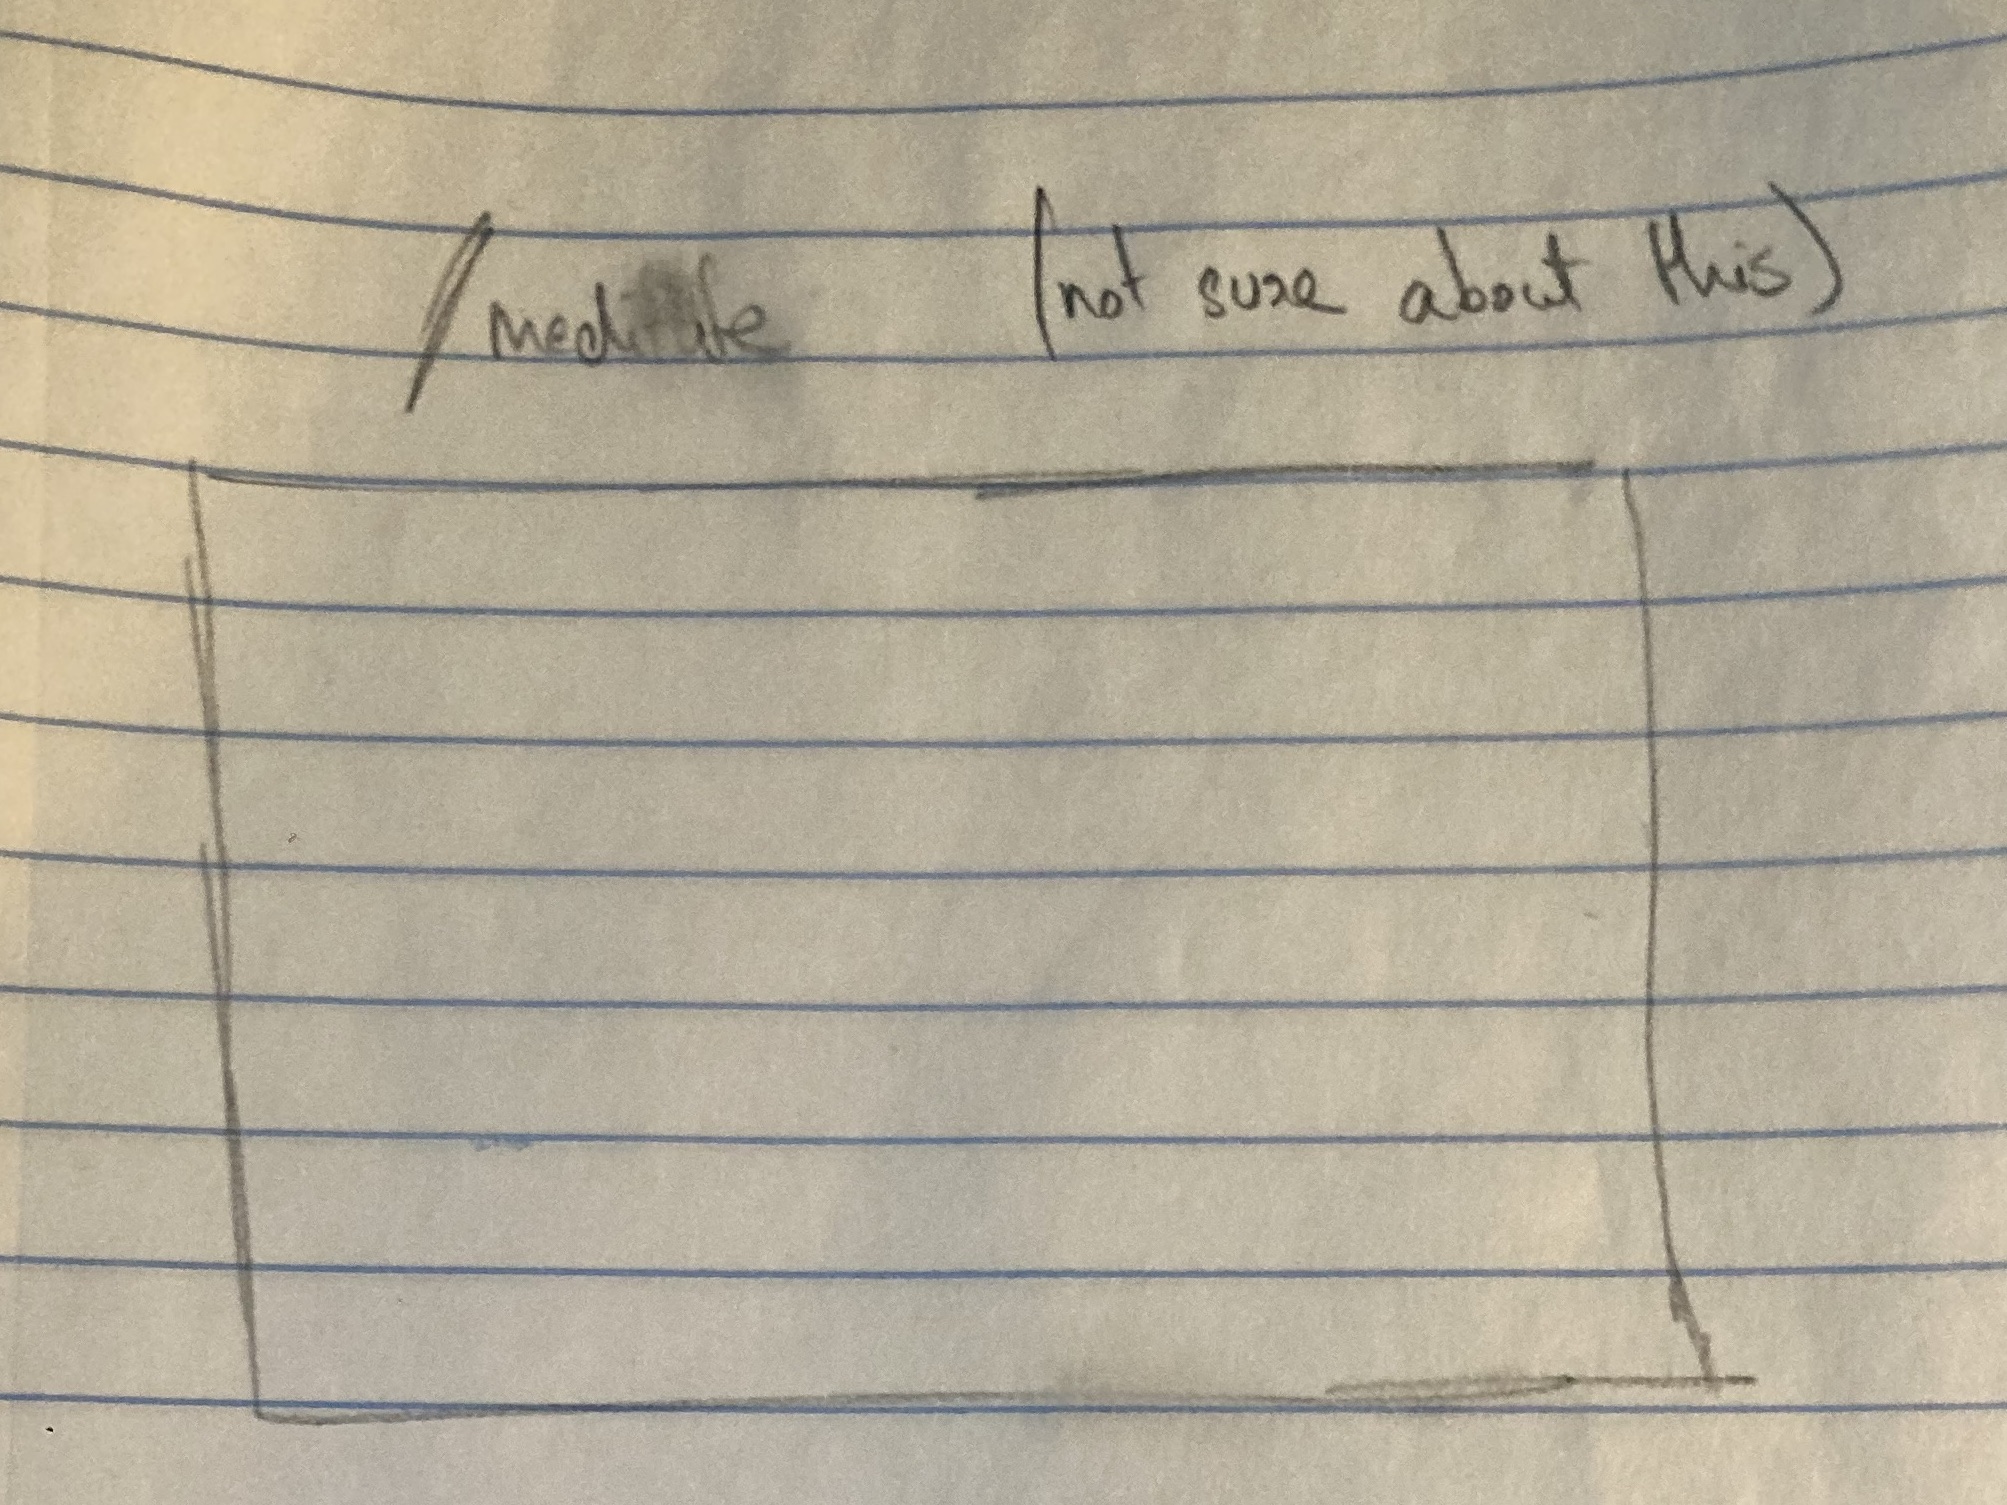 /meditate (not sure about this)